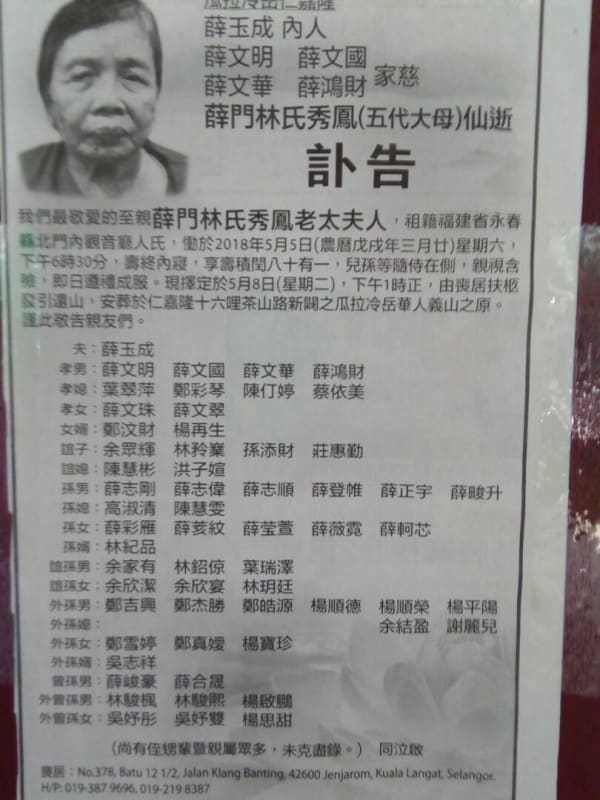 瓜拉冷岳仁嘉隆
薛玉成 內人
薛文明 薛文國
薛文華 薛鴻財 家慈
薛門林氏秀鳳(五代大母)仙逝
訃告
我們最敬愛的至親薛門林氏秀鳳老太夫人，祖籍福建省永春
縣北門內觀音廳人氏，慟於2018年5月5日(農曆戊戌年三月廿)星期六，
下午6時30分，壽終內寢，享壽積閏八十有一，兒孫等隨侍在側，親視含
殮，即日遵禮成服。現擇定於5月8日(星期二)，下午1時正，由喪居扶柩
發引還山，安葬於仁嘉隆十六哩茶山路新闢之瓜拉冷岳華人義山之原。
謹此敬告親友們。
夫：薛玉成
孝男：薛文明 薛文國 薛文華 薛鴻財
孝媳：葉翠萍 鄭彩琴 陳仃婷 蔡依美
孝女：薛文珠 薛文翠
女婿：鄭汶財 楊再生
誼子：余眾輝 林矜業 孫添財 莊惠勤
誼媳：陳慧彬 洪子媗
孫男：薛志剛 薛志偉 薛志順 薛登帷 薛正宇 薛畯升
孫媳：高淑清 陳慧雯
孫女：薛彩雁 薛荄紋 薛莹萱 薛薇霓 薛軻芯
孫婿：林紀品
誼孫男：余家有 林鉊倞 葉瑞澤
誼孫女：余欣潔 余欣宴 林玥廷
外孫男：鄭吉興 鄭杰勝 鄭皓源 楊順德 楊順榮 楊平陽
外孫媳： 余結盈 謝麗兒
外孫女：鄭雪婷 鄭真嬡 楊寶珍
外孫婿：吳志祥
曾孫男：薛峻豪 薛合晟
外曾孫男：林駿楓 林駿熙 楊啟鵬
外曾孫女：吳妤彤 吳妤雙 楊思甜
(尚有侄甥輩暨親屬眾多，未克盡錄。) 同泣啟
喪居：No.378, Batu 12 1/2, Jalan Klang Banting, 42600 Jenjarom, Kuala Langat, Selangor.
H/P: 019-387 9696, 019-219 8387